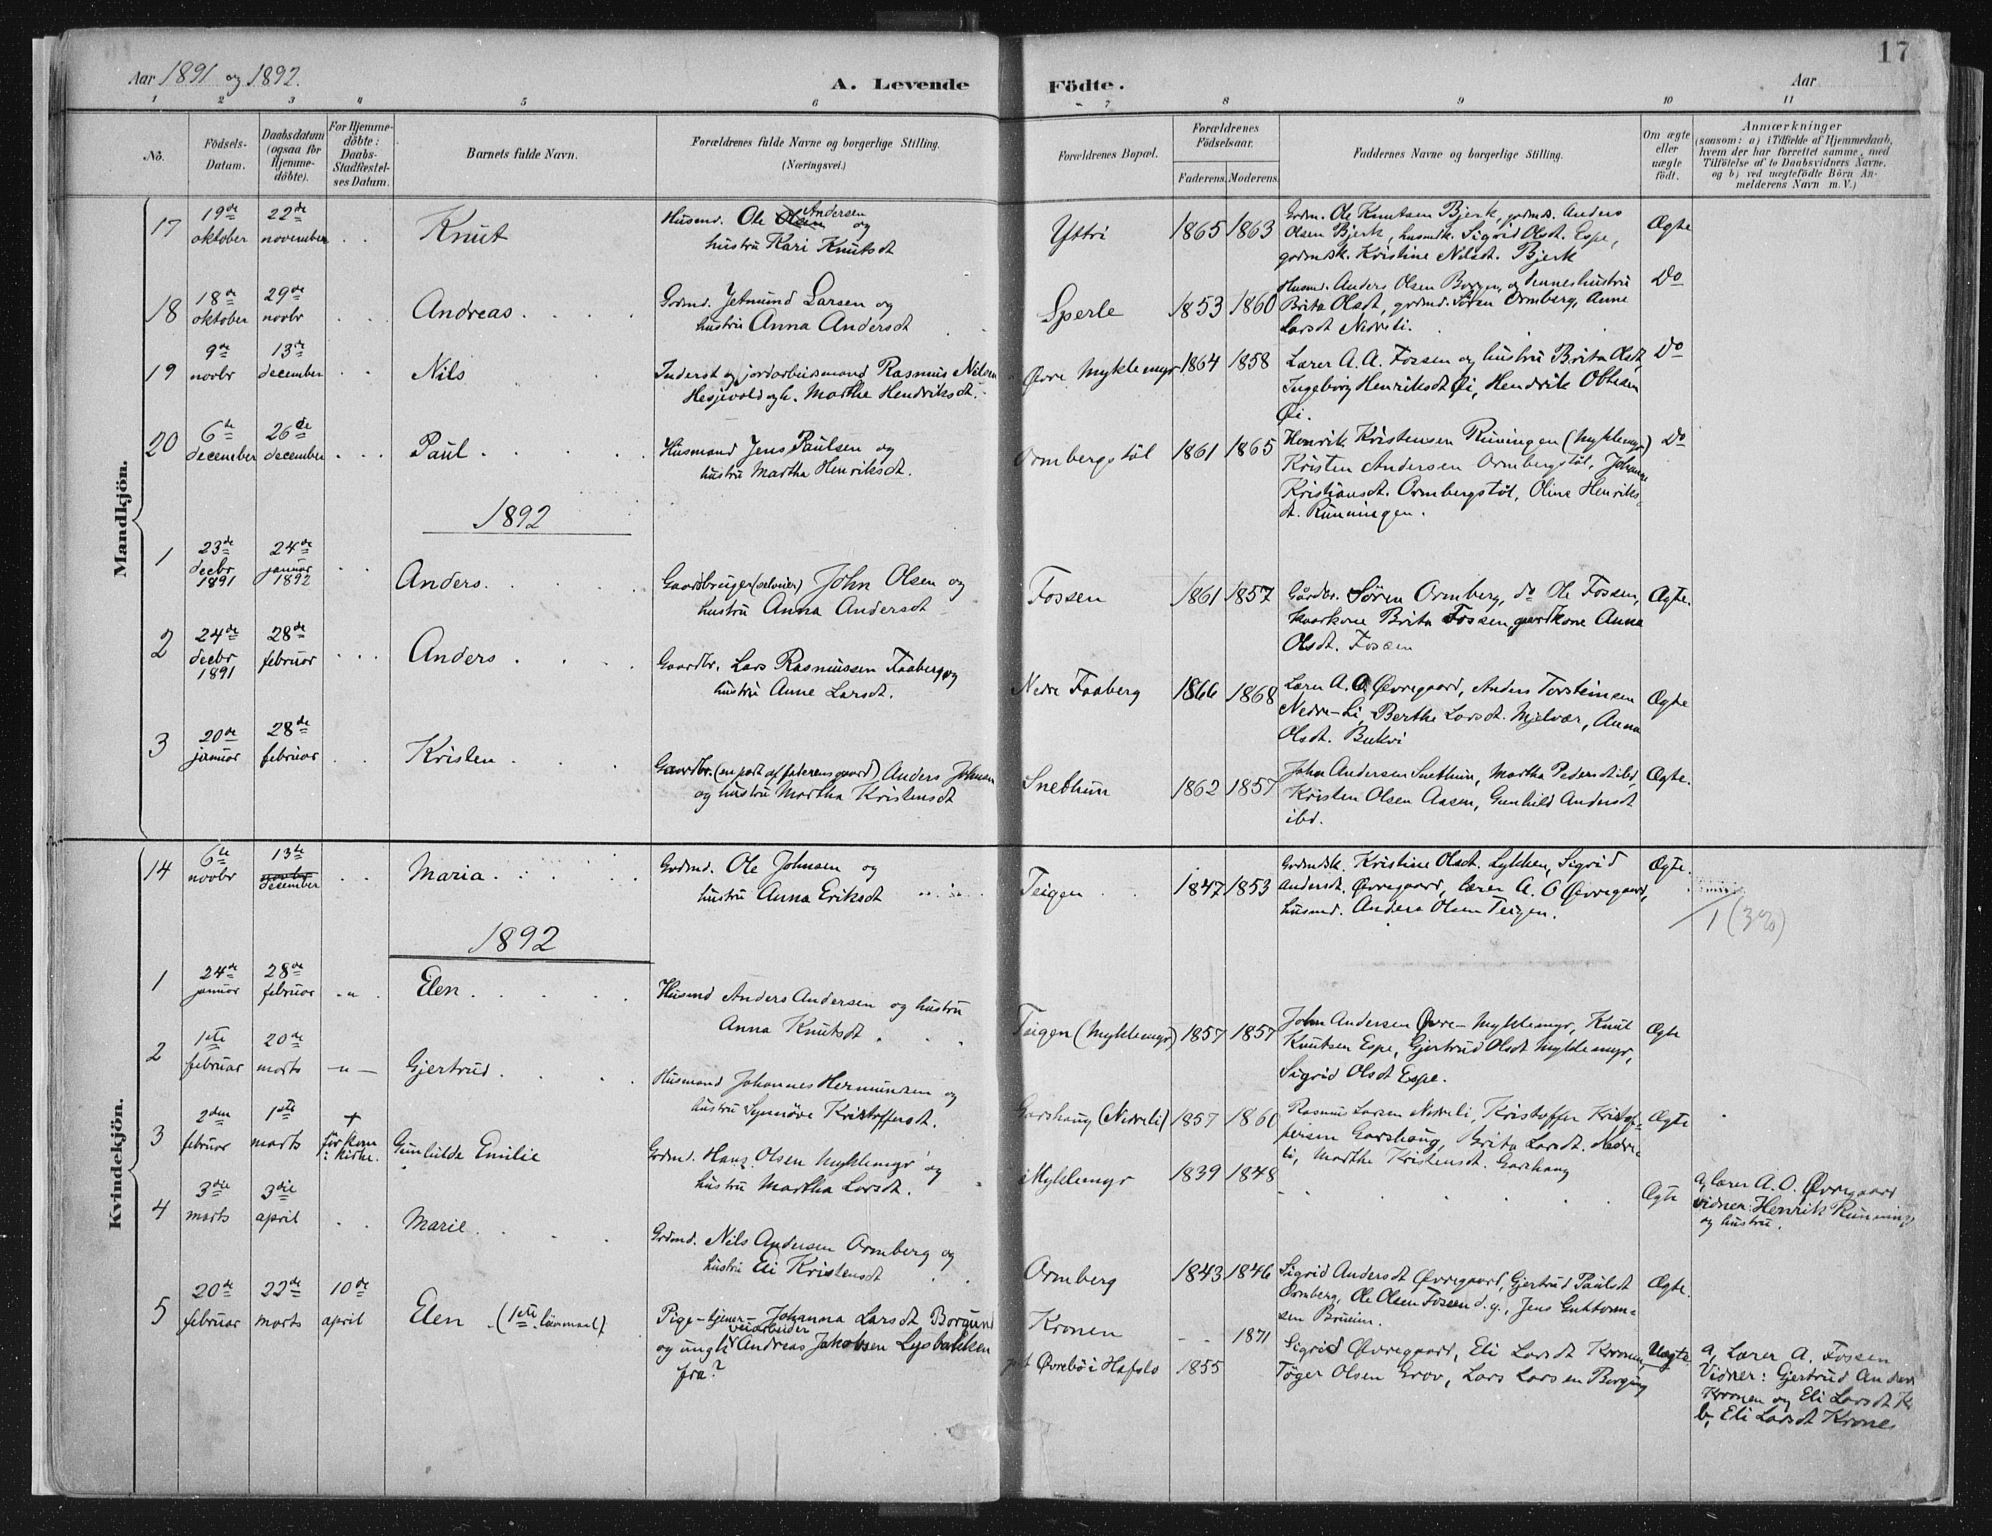 17
Aar 1891 og 1892.
A. Levende Födte.
Aar
1 2 3 4 5 6 7 8 9 10 11
No.
Födsels-Datum.
Daabsdatum (ogsaa for Hjemme-döbte).
For Hjemme-döbte: Daabs-Stadfæstel-ses Datum.
Barnets fulde Navn.
Forældrenes fulde Navne og borgerlige Stilling. (Næringsvei.)
Forældrenes Bopæl.
Forældrenes Födselsaar.
Faderens. Moderens.
Faddernes Navne og borgerlige Stilling.
Om ægte eller uægte födt.
Anmærkninger
(saasom: a) i Tilfælde af Hjemmedaab, hvem der har forrettet samme, med Tilföielse af to Daabsvidners Navne, og b) ved uægtefödte Börn An-melderens Navn m. V.)
Mandkjön.
17 19de oktober 22de november Knut
Husmd. Ole Olsen Andersen og
hustru Kari Knutsdt
Yttri 1865 1863
Grdm. Ole Knutsen Bjerk, grdmds. Anders
Olsen Bjerk, husmdk. Sigrid Olsdt. Espe,
grdmdsk. Kristine Nilsdt. Bjerk
Ægte
18 18de oktober 29de novbr Andreas
Grdmd. Jetmund Larsen og
hustru Anna Andersdt
Sperle 1853 1860
Husmd. Anders Olsen Borgen, og dennes hustru
Brita Olsdt, grdmd. Sören Ormberg, Anne
Larsdt Nedreli.
Do
19 9de novbr 13de december Nils
Inderst og jordarbeidsmand Rasmus Nilsen
Hesjevold og h. Marthe Hendriksdt.
Övre Myklemyr 1864 1858
Lærer A. A. Fossen og hustru Brita Olsdt,
Ingeborg Henriksdt Öi, Hendrik Ottesen
Öi.
Do
20 6te december 26de december Paul
Husmand Jens Paulsen og
hustru Martha Henriksdt.
Ormbergstöl 1861 1865
Henrik Kristensen Runingen (Myklemyr)
Kristen Andersen Ormbergstöl, Johanne
Kristiansdt. Ormbergstöl, Oline Henriks-
dt. Runningen.
Do
1892
1 23de decbr 1891 24de januar 1892 Anders
Gaardbruger (selveier) John Olsen og
hustru Anna Andersdt
Fossen 1861 1857
Gårdbr. Sören Ormberg, do Ole Fossen,
kaarkone Brita Fossen, gardkone Anna
Olsdt. Fossen
Ægte.
2 24de decbr 1891 28de februar Anders
Gaardbr. Lars Rasmussen Faaberg og
hustru Anne Larsdt.
Nedre Faaberg 1866 1868
Lærer A. O. Övregaard, Anders Torsteinsen
Nedre-Li, Berthe Larsdt. Mjelvær, Anna
Olsdt. Bukvi
Ægte
3 20de januar 28de februar Kristen
Gaardbr. (en part af faderens gaard) Anders Johnsen
og hustru Martha Kristensdt
Snethun 1862 1857
John Andersen Snethun, Martha Pedersdt ibd,
Kristen Olsen Aasen, Gunhild Andersdt
ibd.
Ægte.
Kvindekjön.
14 6te novbr 13te novbr december Maria
Grdmd. Ole Johnsen og
hustru Anna Eriksdt
Teigen 1847 1853
Grdmdsk. Kristine Olsdt. Lykken, Sigrid
Andersdt. Övregaard, lærer A. O Övregaard,
husmd. Anders Olsen Teigen.
Ægte.
1892
1 24de januar 28de februar -"- Elen
Husmd Anders Andersen og hustru
Anna Knutsdt
Teigen (Myklemyr) 1857 1857
John Andersen Övre-Myklemyr, Knut
Knutsen Espe, Gjertrud Olsdt Myklemyr,
Sigrid Olsdt Espe.
Ægte
2 1ste februar 20de marts -"- Gjertrud
Husmand Johannes Hermundsen og
hustru Synnöve Kristoffersdt.
Garshaug (Nedreli) 1857 1860
Rasmus Larsen Nedreli, Kristoffer Kristof-
fersen Garshaug, Brita Larsdt. Nedre-
li, Marthe Kristensdt. Garshaug
Ægte
3 2den februar 1ste marts + för kom i kirke. Gunhilde Emilie
Grdmd. Hans Olsen Myklemyr og
hustru Martha Larsdt.
Myklemyr 1839 1848
Ægte
a, lærer A. O. Övregaard
vidner: Henrik Running
og hustru.
4 3die marts 3die april Marie
Grdmd. Nils Andersen Ormberg og
hustru Eli Kristensdt
Ormberg 1843 1846
Sigrid Andersdt Övregaard, Gjertrud Paulsdt
Ormberg, Ole Olsen Fossen d. y., Jens Guttorm-
sen Brueim.
Ægte.
5 20de februar 22de marts 10de april Elen (1ste leiermaal).
Pige-tjener- Johanna Larsdt Borgund
og ungk. veiarbeider Andreas Jakobsen Lysbakken
fra?
Kronen 1871
pt Övrebö i Hafslo 1855
Sigrid Övregaard, Eli Larsdt Kronen,
Töger Olsen Grov, Lars Larsen Borgung
Uægte
a, Lærer A. Fossen
Vidner: Gjertrud Anders
Kronen og Eli Larsdt K
b, Eli Larsdt Kronen